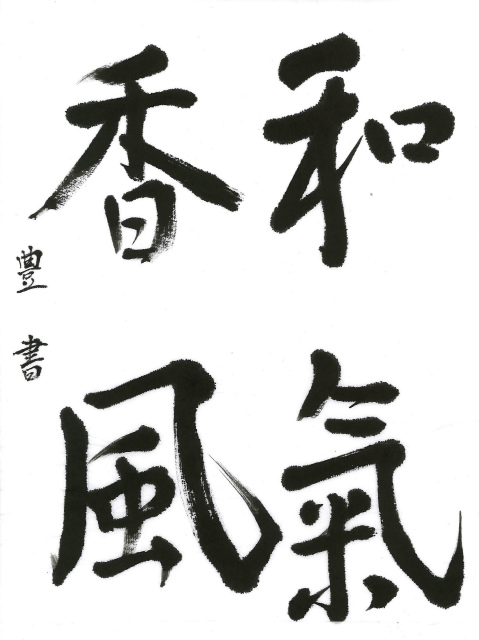 和氣
香風
豊書